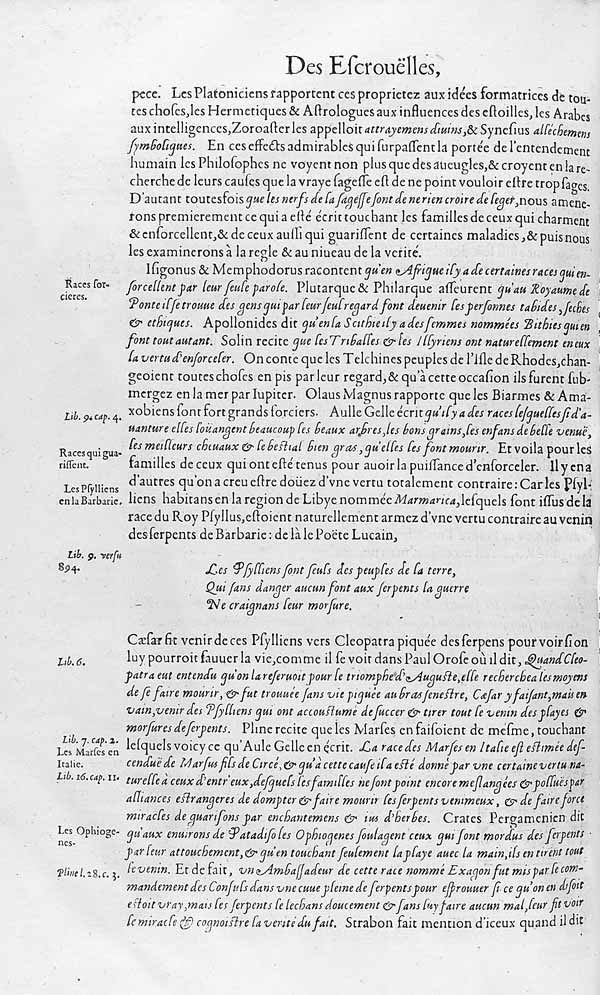 Des Eſcrouëlles,
pece. Les Platoniciens rapportent ces proprietez aux idées formatrices de tou-
tes choſes, les Hermetiques & Aſtrologues aux influences des eſtoilles, les Arabes
aux intelligences, Zoroaſter les appelloit attrayemens diuins, & Syneſius alléchemens
ſymboliques. En ces effects admirables qui ſurpaſſent la portée de l'entendement
humain les Philoſophes ne voyent non plus que des aueugles, & croyent en la re-
cherche de leurs cauſes que la vraye ſageſſe eſt de ne point vouloir eſtre trop ſages.
D'autant toutesfois que les nerfs de la ſageſſe ſont de ne rien croire de leger, nous amene-
rons premierement ce qui a eſté écrit touchant les familles de ceux qui charment
& enſorcellent, & de ceux auſſi qui guariſſent de certaines maladies, & puis nous
les examinerons à la regle & au niueau de la verité.
Races ſor-
cieres.
Iſigonus & Memphodorus racontent qu'en Afrique il y a de certaines races qui en-
ſorcellent par leur ſeule parole. Plutarque & Philarque aſſeurent qu'au Royaume de
Ponte il ſe trouue des gens qui par leur ſeul regard font deuenir les perſonnes tabides, ſeches
& ethiques. Apollonides dit qu'en la Scithie il y a des femmes nommées Bithies qui en
font tout autant. Solin recite que les Triballes & les Illyriens ont naturellement en eux
la vertu d'enſorceler. On conte que les Telchines peuples de l'Iſle de Rhodes, chan-
geoient toutes choſes en pis par leur regard, & qu'à cette occaſion ils furent ſub-
mergez en la mer par Iupiter. Olaus Magnus rapporte que les Biarmes & Ama-
Lib. 9. cap. 4.
xobiens ſont fort grands ſorciers. Aulle Gelle écrit qu'il y a des races leſquelles ſi d'a-
uanture elles loüangent beaucoup les beaux arbres, les bons grains, les enfans de belle venuë,
les meilleurs cheuaux & le beſtial bien gras, qu'elles les font mourir. Et voila pour les
Races qui gua-
riſſent.
familles de ceux qui ont eſté tenus pour auoir la puiſſance d'enſorceler. Il y en a
d'autres qu'on a creu eſtre doüez d'vne vertu totalement contraire: Car les Pſyl-
Les Pſylliens
en la Barbarie.
liens habitans en la region de Libye nommée Marmarica, leſquels ſont iſſus de la
race du Roy Pſyllus, eſtoient naturellement armez d'vne vertu contraire au venin
des ſerpents de Barbarie: de là le Poëte Lucain,
Lib. 9. verſu
894.
Les Pſylliens ſont ſeuls des peuples de la terre,
Qui ſans danger aucun font aux ſerpents la guerre
Ne craignans leur morſure.
Cæſar fit venir de ces Pſylliens vers Cleopatra piquée des ſerpens pour voir ſi on
Lib. 6.
luy pourroit ſauuer la vie, comme il ſe voit dans Paul Oroſe où il dit, Quand Cleo-
patra eut entendu qu'on la reſeruoit pour le triomphe d'Auguſte, elle recherchea les moyens
de ſe faire mourir, & fut trouuée ſans vie piquée au bras ſeneſtre, Cæſar y faiſant, mais en
vain, venir des Pſylliens qui ont accouſtumé de ſuccer & tirer tout le venin des playes &
morſures de ſerpents. Pline recite que les Marſes en faiſoient de meſme, touchant
Lib. 7. cap. 2.
Les Marſes en
Italie.
leſquels voicy ce qu'Aule Gelle en écrit. La race des Marſes en Italie eſt eſtimée deſ-
cenduë de Marſus fils de Circé, & qu'à cette cauſe il a eſté donné par vne certaine vertu na-
Lib. 16. cap. 11.
turelle à ceux d'entr'eux, deſquels les familles ne ſont point encore meſlangées & polluës par
alliances eſtrangeres de dompter & faire mourir les ſerpents venimeux, & de faire force
miracles de guariſons par enchantemens & ius d'herbes. Crates Pergamenien dit
Les Ophioge-
nes.
qu'aux enuirons de Patadiſo les Ophiogenes ſoulagent ceux qui ſont mordus des ſerpents
par leur attouchement, & qu'en touchant ſeulement la playe auec la main, ils en tirent tout
Pline l. 28. c. 3.
le venin. Et de fait, vn Ambaſſadeur de cette race nommé Exagon fut mis par le com-
mandement des Conſuls dans vne cuue pleine de ſerpents pour eſprouuer ſi ce qu'on en diſoit
eſtoit vray, mais les ſerpents le lechans doucement & ſans luy faire aucun mal, leur fit voir
le miracle & cognoiſtre la verité du fait. Strabon fait mention d'iceux quand il dit